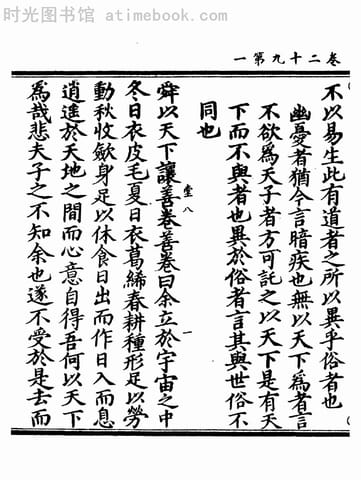 时光图书馆 - atimebook.com
卷二十九第一
不以易生此有道者之所以異乎俗者也
幽憂者猶今言暗疾也無以天下爲者言
不欲爲天子者方可託之以天下是有天
下而不與者也異於俗者言其與世俗不
同也
堂八
一
舜以天下讓善卷善卷曰余立於宇宙之中
冬日衣皮毛夏日衣葛絺春耕種形足以勞
動秋收斂身足以休食日出而作日入而息
逍遥於天地之間而心意自得吾何以天下
爲哉悲夫子之不知余也遂不受於是去而